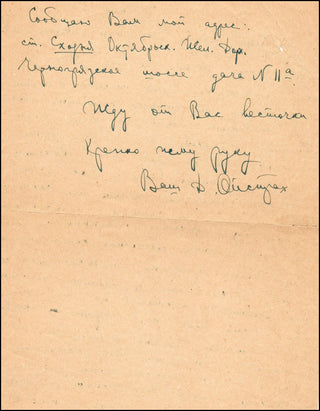 Сообщаю Вам мой адрес:
ст. Сходня Октябрьск. Жел. Дор.
Черногрязское шоссе дача N 11а
Жду от Вас весточки
Крепко жму руку
Ваш Д. Ойстрах